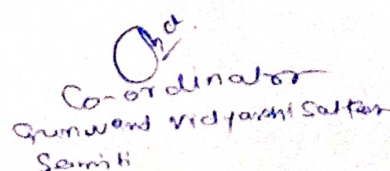 Co-ordinator
Gunwant Vidyarthi Satkar
Samiti